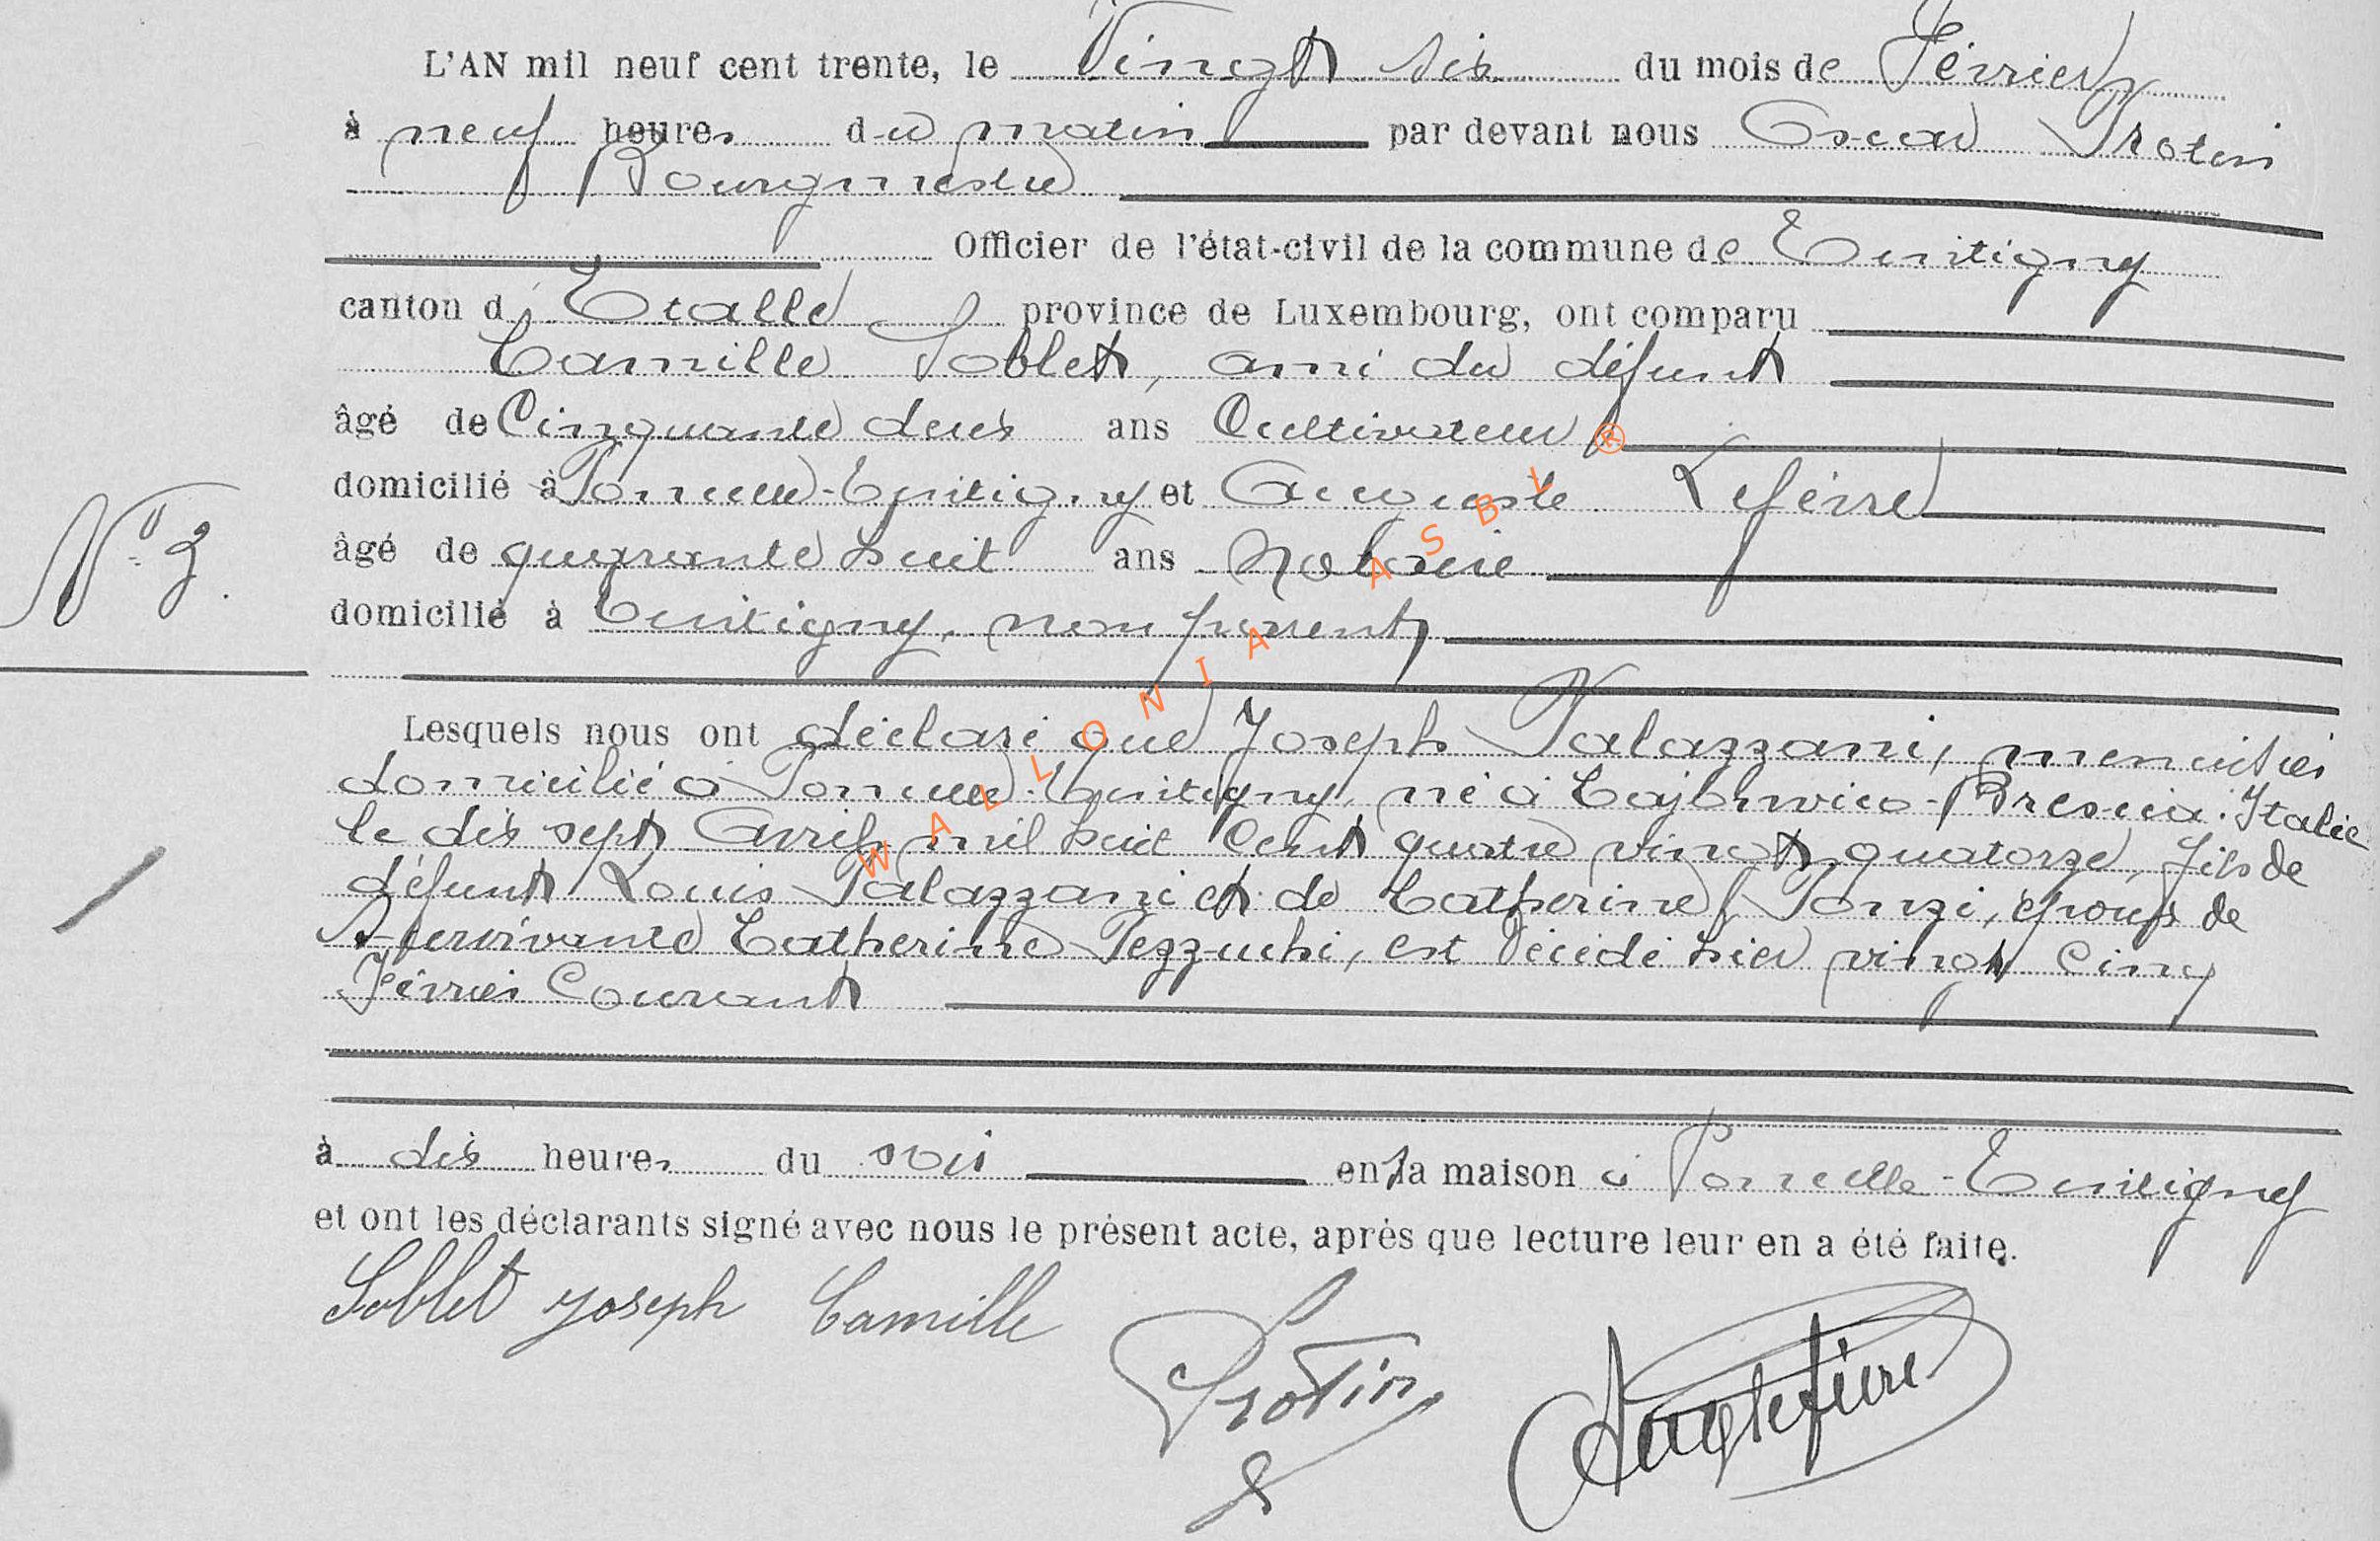 L'AN mil neuf cent trente, le Vingt six du mois de Février
à neuf heures du matin par devant nous Oscar Protin
Bourgmestre
Officier de l'état-civil de la commune de Tintigny
canton d'Etalle province de Luxembourg, ont comparu
Camille Soblet, ami du défunt
âgé de Cinquante deux ans Cultivateur
domicilié à Poncelle-Tintigny et Auguste Lefèvre
N° 3.
âgé de quarante huit ans Notaire
domicilié à Tintigny, non parent,
Lesquels nous ont déclaré que Joseph Palazzani, menuisier
domicilié à Poncelle-Tintigny, né à Brescia. Italie
le dix sept Avril mil huit Cent quatre vingt quatorze, fils de
défunt Louis Palazzani et de Catherine Ponzi, époux de
survivante Catherine est décédé hier vingt Cinq
Février Courant
à dix heures du soir en sa maison à Poncelle-Tintigny
et ont les déclarants signé avec nous le présent acte, après que lecture leur en a été faite.
Soblet Joseph Camille
Protin
Aug Lefèvre
WALLONIA ASBL ®